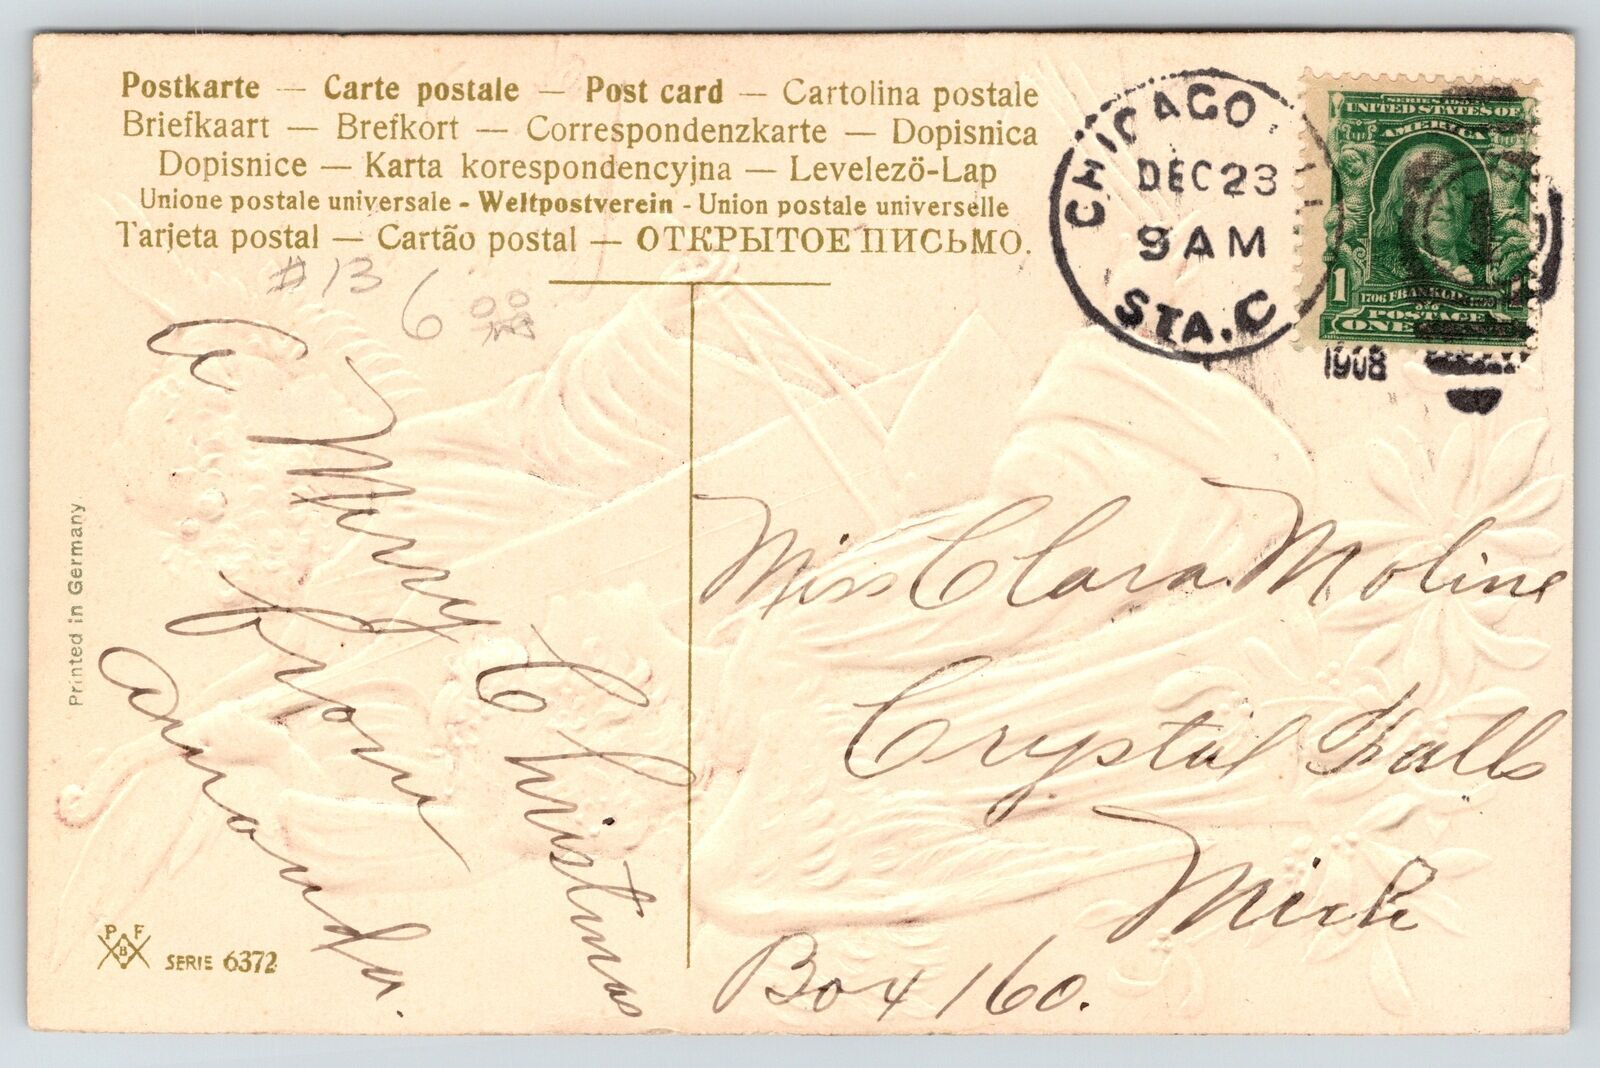 Postkarte — Carte postale — Post card — Cartolina postale
Briefkaart — Brefkort — Correspondenzkarte — Dopisnica
Dopisnice — Karta korespondencyjna — Levelezö-Lap
Unione postale universale - Weltpostverein - Union postale universelle
Tarjeta postal — Cartão postal — ОТКРЫТОЕ ПИСЬМО.
#13
6 00
CHICAGO, ILL
DEC 23
9 AM
STA. C
1908
UNITED STATES OF
AMERICA
1
1706 FRANKLIN 1790
POSTAGE
ONE
A
Merry Christmas
from
Amanda.
Miss Clara Moline
Crystal Falls
Mich
Box 160.
Printed in Germany.
P F
B
SERIE 6372